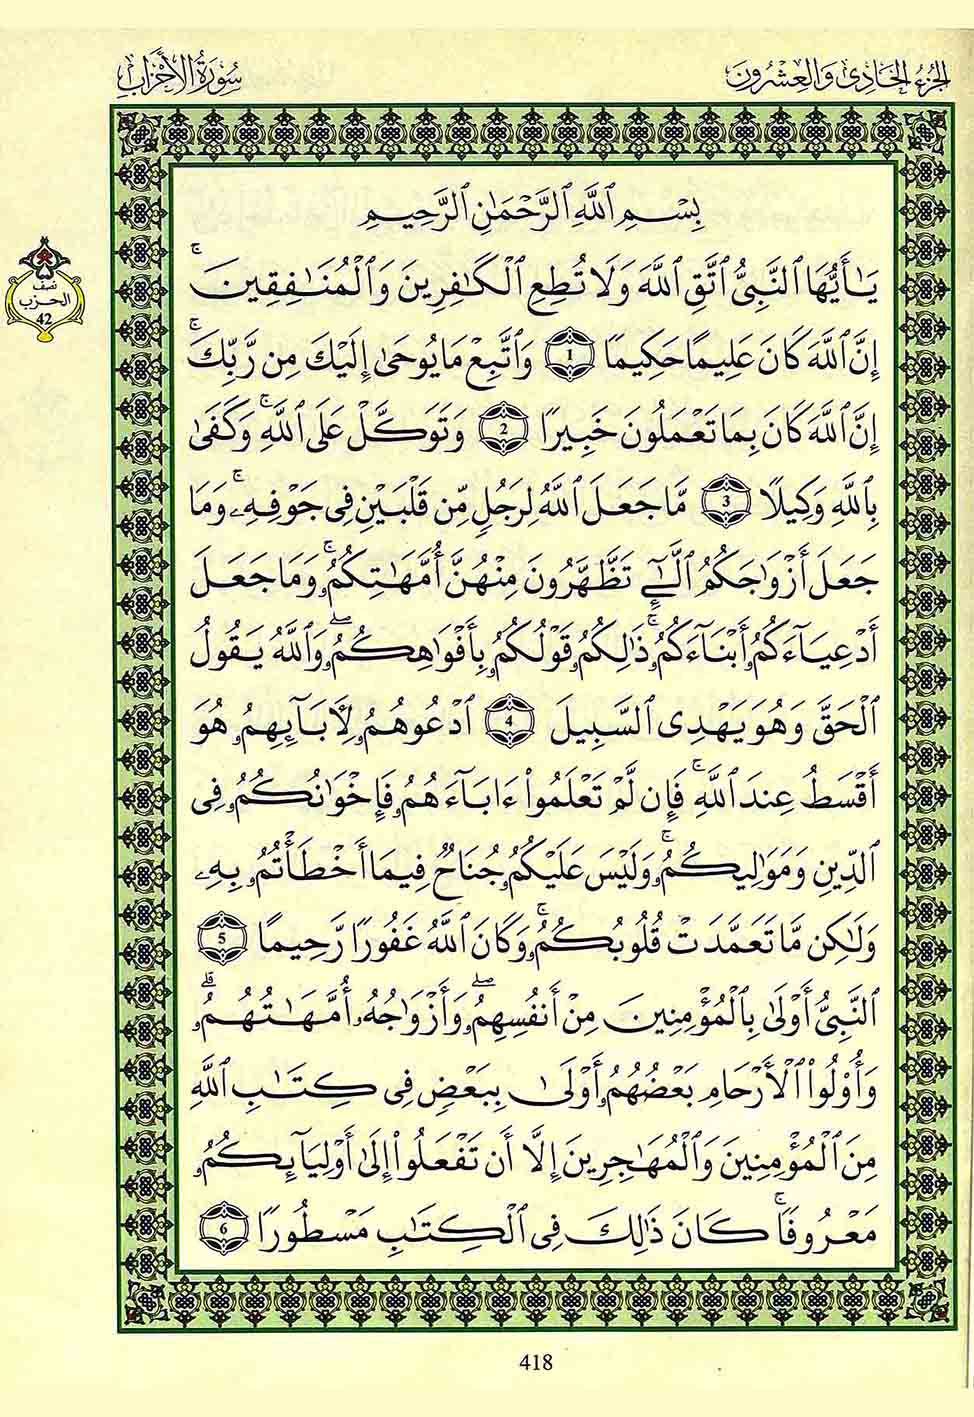 الجزء الحادي والعشرون
سورة الأحزاب
بِسْمِ ٱللَّهِ ٱلرَّحْمَٰنِ ٱلرَّحِيمِ
يَٰأَيُّهَا ٱلنَّبِىُّ ٱتَّقِ ٱللَّهَ وَلَا تُطِعِ ٱلْكَٰفِرِينَ وَٱلْمُنَٰفِقِينَ ۚ
إِنَّ ٱللَّهَ كَانَ عَلِيمًا حَكِيمًا 1 وَٱتَّبِعْ مَا يُوحَىٰ إِلَيْكَ مِن رَّبِّكَ ۚ
إِنَّ ٱللَّهَ كَانَ بِمَا تَعْمَلُونَ خَبِيرًا 2 وَتَوَكَّلْ عَلَى ٱللَّهِ ۚ وَكَفَىٰ
بِٱللَّهِ وَكِيلًا 3 مَّا جَعَلَ ٱللَّهُ لِرَجُلٍ مِّن قَلْبَيْنِ فِى جَوْفِهِۦ ۚ وَمَا
جَعَلَ أَزْوَٰجَكُمُ ٱلَّٰٓـِٕ تَظَّهَّرُونَ مِنْهُنَّ أُمَّهَٰتِكُمُۥ ۚ وَمَا جَعَلَ
أَدْعِيَآءَكُمُۥ أَبْنَآءَكُمُۥ ۚ ذَٰلِكُمُۥ قَوْلُكُمُۥ بِأَفْوَٰهِكُمُۥ ۖ وَٱللَّهُ يَقُولُ
ٱلْحَقَّ وَهُوَ يَهْدِى ٱلسَّبِيلَ 4 ٱدْعُوهُمُۥ لِأٓبَآئِهِمُۥ هُوَ
أَقْسَطُ عِندَ ٱللَّهِ ۚ فَإِن لَّمْ تَعْلَمُوا۟ ءَابَآءَهُمُۥ فَإِخْوَٰنُكُمُۥ فِى
ٱلدِّينِ وَمَوَٰلِيكُمُۥ ۚ وَلَيْسَ عَلَيْكُمُۥ جُنَاحٌ فِيمَا أَخْطَأْتُمُۥ بِهِۦ
وَلَٰكِن مَّا تَعَمَّدَتْ قُلُوبُكُمُۥ ۚ وَكَانَ ٱللَّهُ غَفُورًا رَّحِيمًا 5
ٱلنَّبِىُّ أَوْلَىٰ بِٱلْمُؤْمِنِينَ مِنْ أَنفُسِهِمُۥ ۖ وَأَزْوَٰجُهُۥ أُمَّهَٰتُهُمُۥ ۗ
وَأُو۟لُوا۟ ٱلْأَرْحَامِ بَعْضُهُمُۥ أَوْلَىٰ بِبَعْضٍ فِى كِتَٰبِ ٱللَّهِ
مِنَ ٱلْمُؤْمِنِينَ وَٱلْمُهَٰجِرِينَ إِلَّا أَن تَفْعَلُوا۟ إِلَىٰ أَوْلِيَآئِكُمُۥ
مَعْرُوفًا ۚ كَانَ ذَٰلِكَ فِى ٱلْكِتَٰبِ مَسْطُورًا 6
نصف
الحزب
42
418